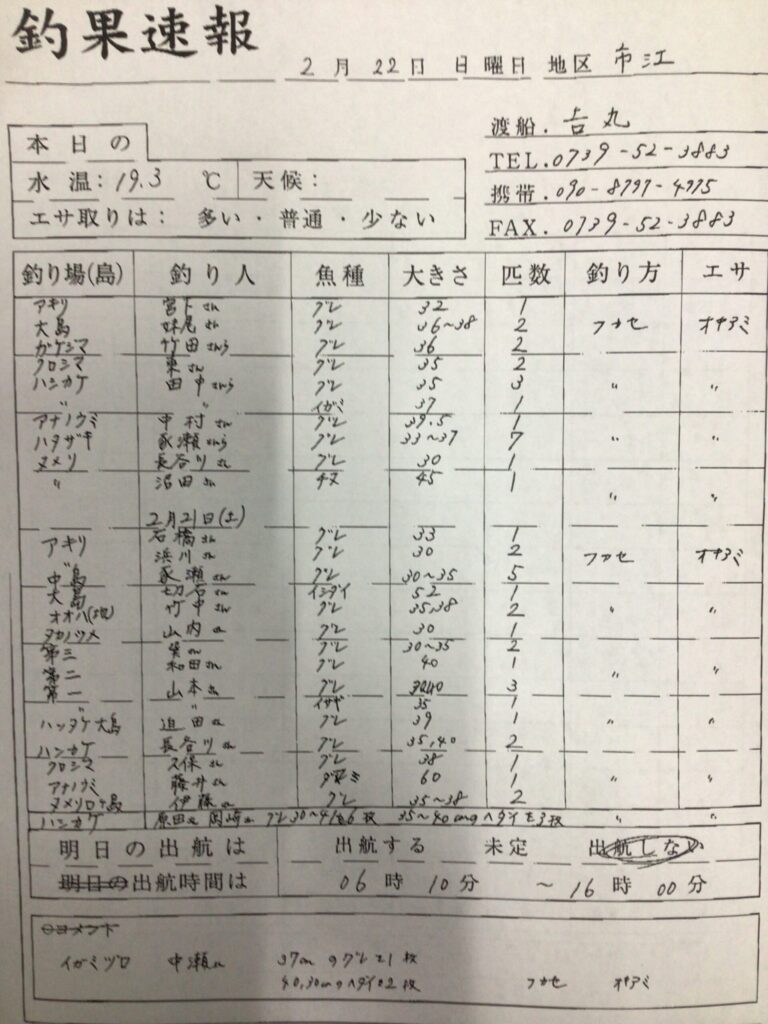 釣果速報
2月22日 日曜日 地区 市江
渡船. 吉丸
本日の
TEL. 0739-52-3883
水温: 19.3 ℃ 天候:
携帯. 090-8797-4975
エサ取りは: 多い・普通・少ない
FAX. 0739-52-3883
釣り場(島) 釣り人 魚種 大きさ 匹数 釣り方 エサ
アキリ 宮下さん グレ 32 1
大島 妹尾さん グレ 36~38 2 フカセ オキアミ
ガケジマ 竹田さんら グレ 36 2
クロシマ 東さん グレ 35 2
ハシカケ 田中さんら グレ 35 3 〃 〃
〃 〃 イガミ 37 1
アナノウミ 中村さん グレ 39.5 1
ハタザキ 家瀬さんら グレ 33~37 7 〃 〃
ヌメリ 長谷川さん グレ 30 1
〃 沼田さん チヌ 45 1 〃 〃
2月21日(土)
アキリ 石橋さん グレ 33 1
浜川さん グレ 30 2 フカセ オキアミ
中島 家瀬さん グレ 30~35 5
大島 切石さん イシダイ 52 1
オオバ(地) 竹中さん グレ 35,38 2 〃 〃
タカノツメ 山内さん 30 1
第三 さん グレ 30~35 2
第二 和田さん グレ 40 1 〃 〃
第一 山本さん グレ 3040 3
〃 イサギ 35 1
ハシカケ大島 迫田さん グレ 39 1 〃 〃
ハシカケ 長谷川さん グレ 35,40 2
クロシマ 久保さん グレ 38 1
アナノウミ 藤井さん 60 1 〃 〃
ヌメリロ 島 伊藤さん グレ 35~38 2
ハシカケ 原田さん 岡崎さん グレ30~41を6枚 35~40cmのヘダイを3枚 〃 〃
明日の出航は 出航する 未定 出航しない
明日の出航時間は 06時10分 ~16時00分
◎コメント
イガミヅロ 中瀬さん 37cmのグレを1枚
40,30cmのヘダイを2枚 フカセ オキアミ